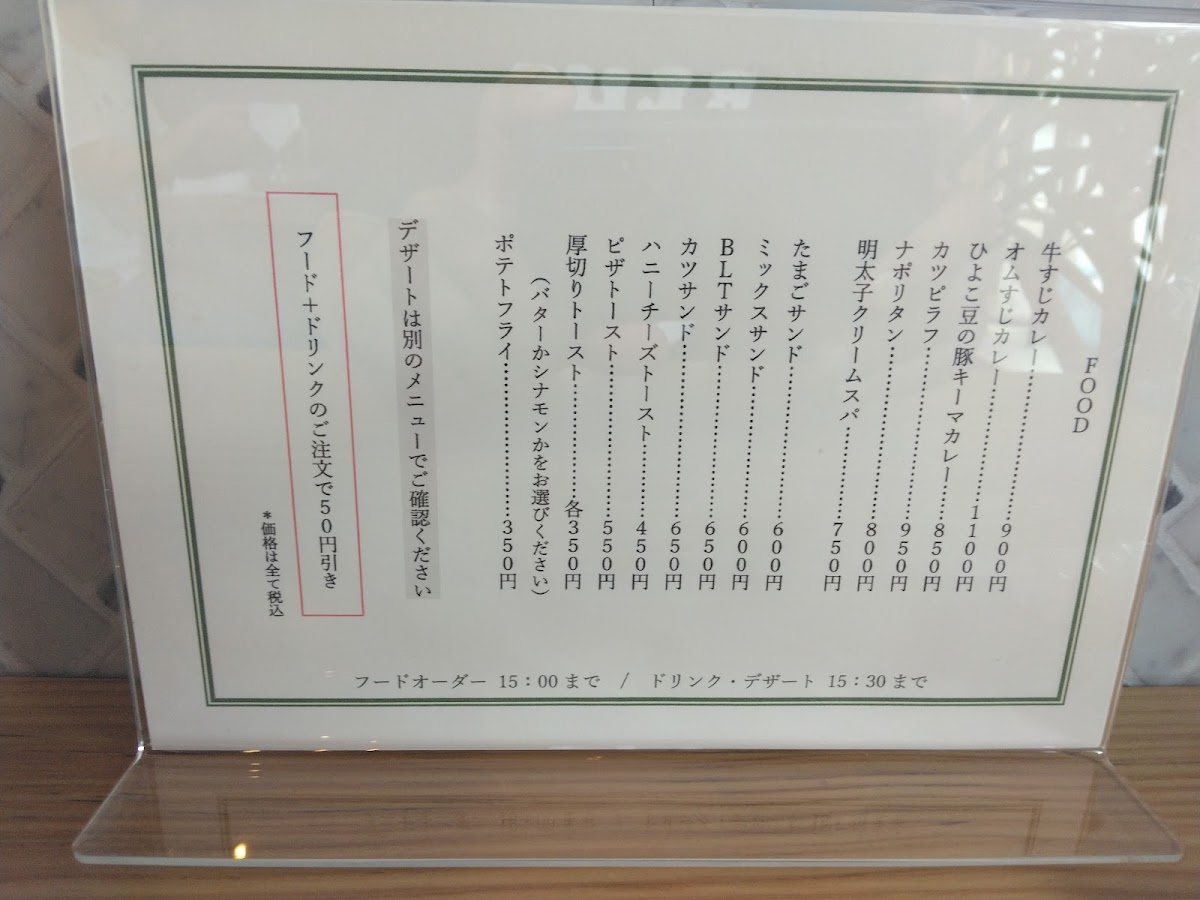 FOOD
牛すじカレー……………………900円
オムすじカレー…………………1100円
ひよこ豆の豚キーマカレー……850円
カツピラフ………………………950円
ナポリタン………………………800円
明太子クリームスパ……………750円
たまごサンド……………………600円
ミックスサンド…………………600円
BLTサンド………………………650円
カツサンド………………………650円
ハニーチーズトースト…………450円
ピザトースト……………………550円
厚切りトースト…………………各350円
(バターかシナモンかをお選びください)
ポテトフライ……………………350円
デザートは別のメニューでご確認ください
フード+ドリンクのご注文で50円引き
*価格は全て税込
フードオーダー 15:00まで / ドリンク・デザート 15:30まで